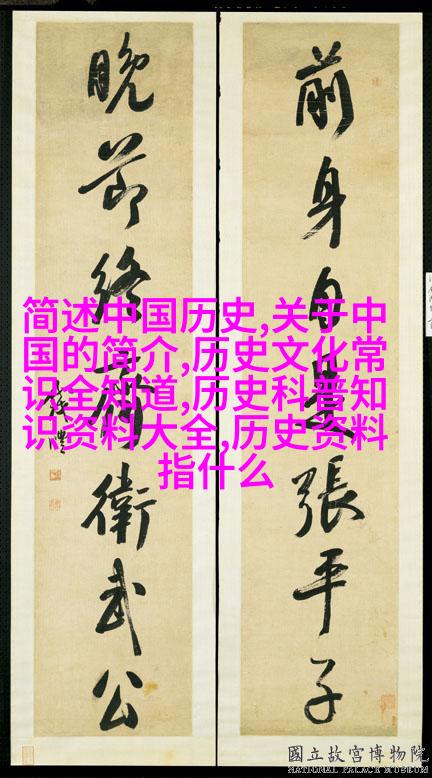 前身自是張平子
晚節終齊衛武公
錢灃
简述中国历史,关于中
国的简介,历史文化常
识全知道,历史科普知
识资料大全,历史资料
指什么
國立故宮博物院
NATIONAL PALACE MUSEUM